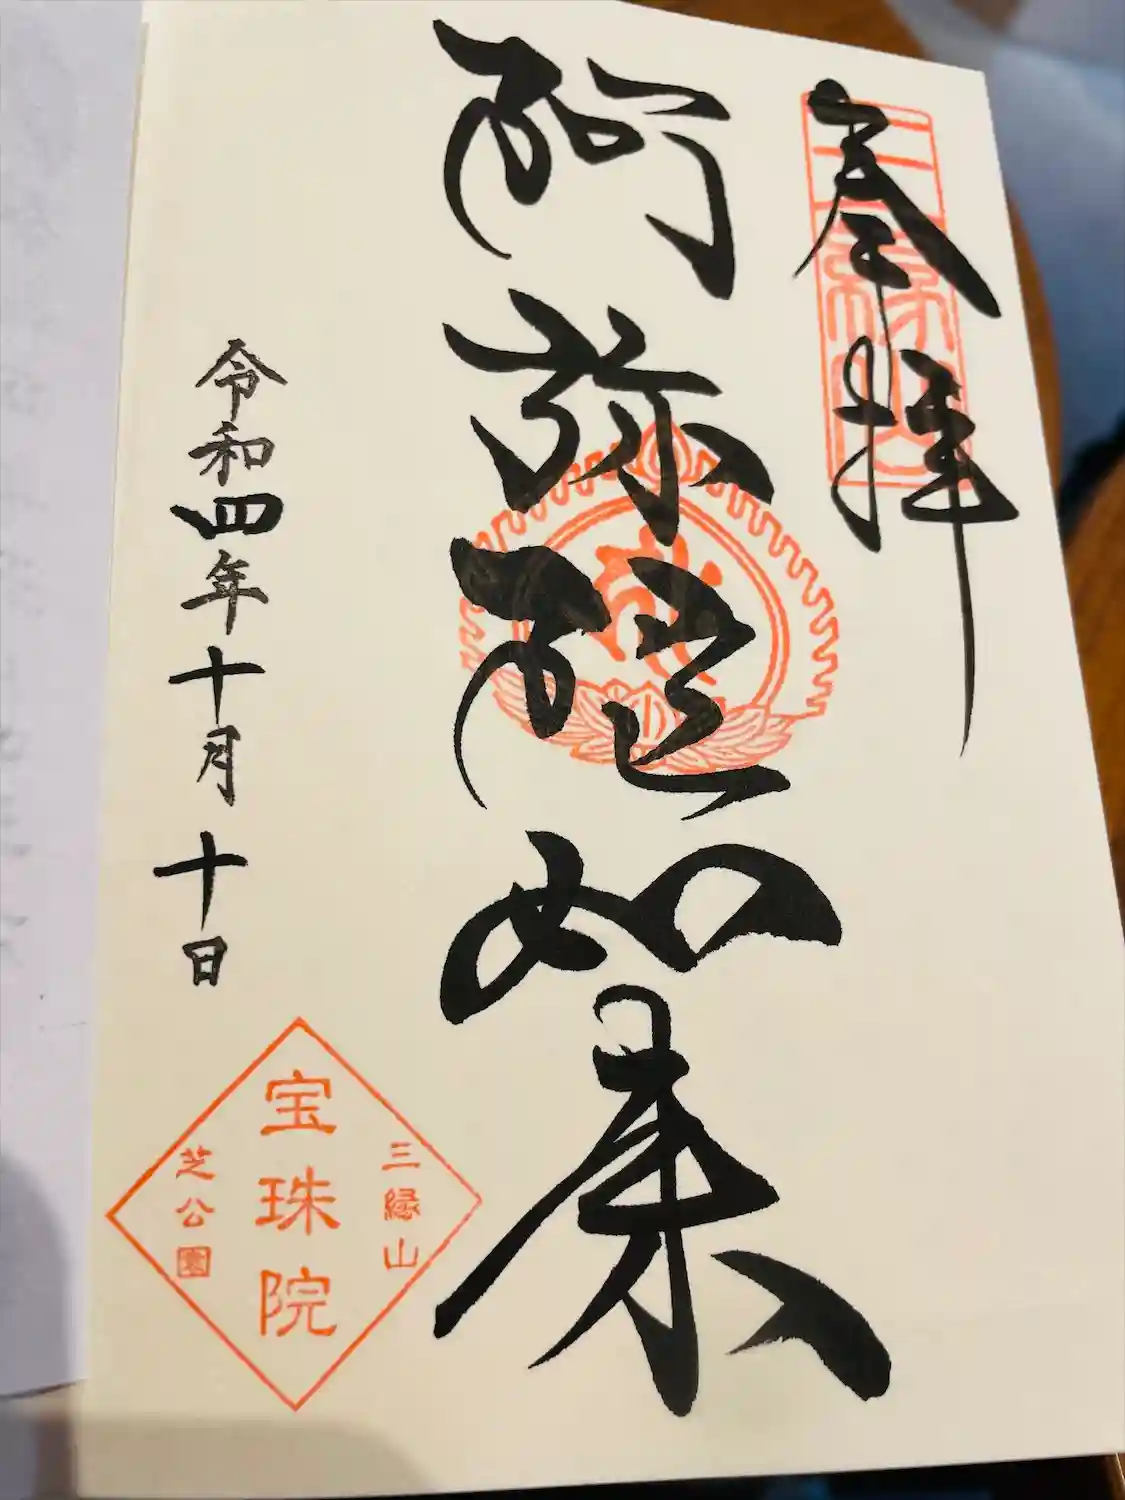 奉拝
三縁山
阿弥陀如来
令和四年十月十日
三縁山
宝珠院
芝公園